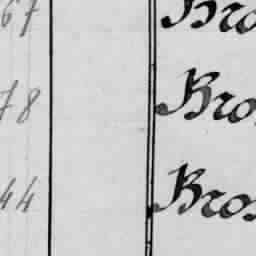 67 Bro
78 Bro
44 Bros